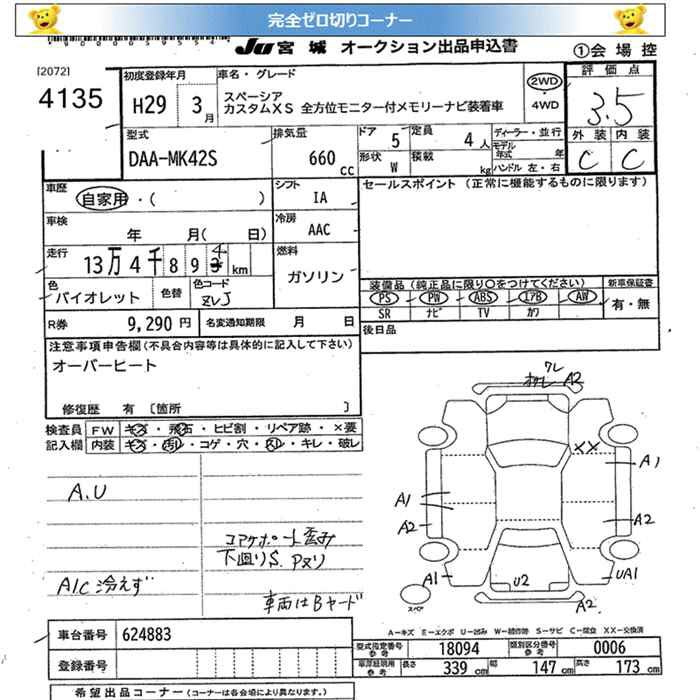 完全ゼロ切りコーナー
JU 宮城 オークション出品申込書
①会場控
[2072]
4135
初度登録年月
H29 3月
車名・グレード
スペーシア
カスタムXS 全方位モニター付メモリーナビ装着車
2WD
・4WD
評価点
3.5
外装 内装
C C
型式
DAA-MK42S
排気量
660 cc
ドア 5
定員 4人
形状 W
積載 kg
ディーラー・並行
モデル年式 年
ハンドル 左・右
車歴
自家用・( )
シフト
IA
セールスポイント (正常に機能するものに限ります)
車検
年 月( 日)
冷房
AAC
走行
13万4千89 4 km
燃料
ガソリン
色
バイオレット
色替
色コード
ZVJ
装備品 (純正品に限り○をつけてください)
新車保証書
PS PW ABS エアB AW
SR ナビ TV カワ
有・無
R券 9,290円
名変通知期限 月 日
後日品
注意事項申告欄 (不具合内容等は具体的に記入して下さい)
オーバーヒート
修復歴 有 〔箇所 〕
検査員 FW キズ・飛石・ヒビ割・リペア跡・×要
記入欄 内装 キズ・汚れ・コゲ・穴・スレ・キレ・破レ
A.U
コアサポート歪み
下廻りS. Pヌリ
A/C 冷えず
車両はBヤード
ワレ
A2
XX
A1
A1
A2
A2
A1
U2
UA1
スペア
A2
A-キズ E-エクボ U-凹み W-補修跡 S-サビ C-腐食 XX-交換済
車台番号 624883
型式指定番号 参考 18094
類別区分番号 参考 0006
登録番号
長さ 339 cm
幅 147 cm
高さ 173 cm
希望出品コーナー (コーナーは各会場により異なります。)